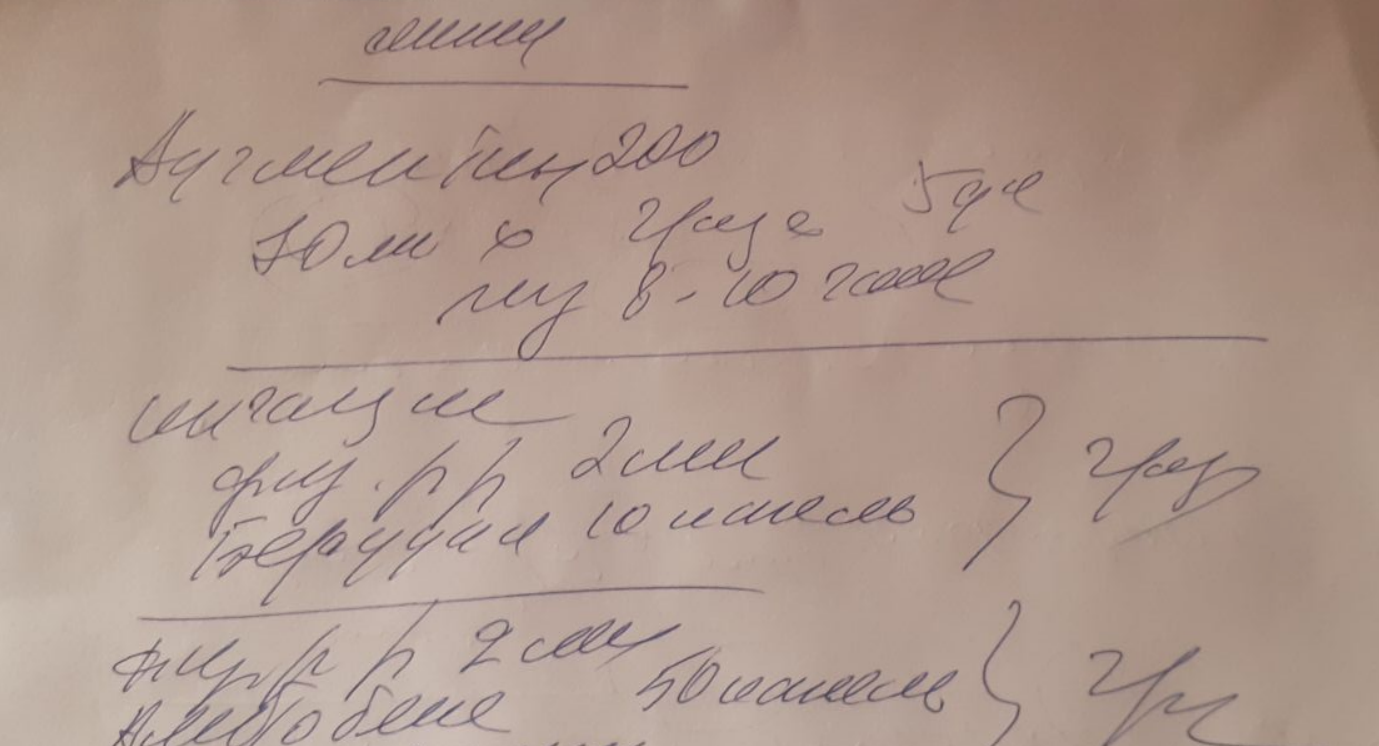 Аугментин 200
10 мл х 2 раза 5 дн
8-10
ингаляции
физ. рр 2 мл
Беродуал 10 капель } 2 раз
физ рр 2 мл
Амбробене 50 капель } 2 р